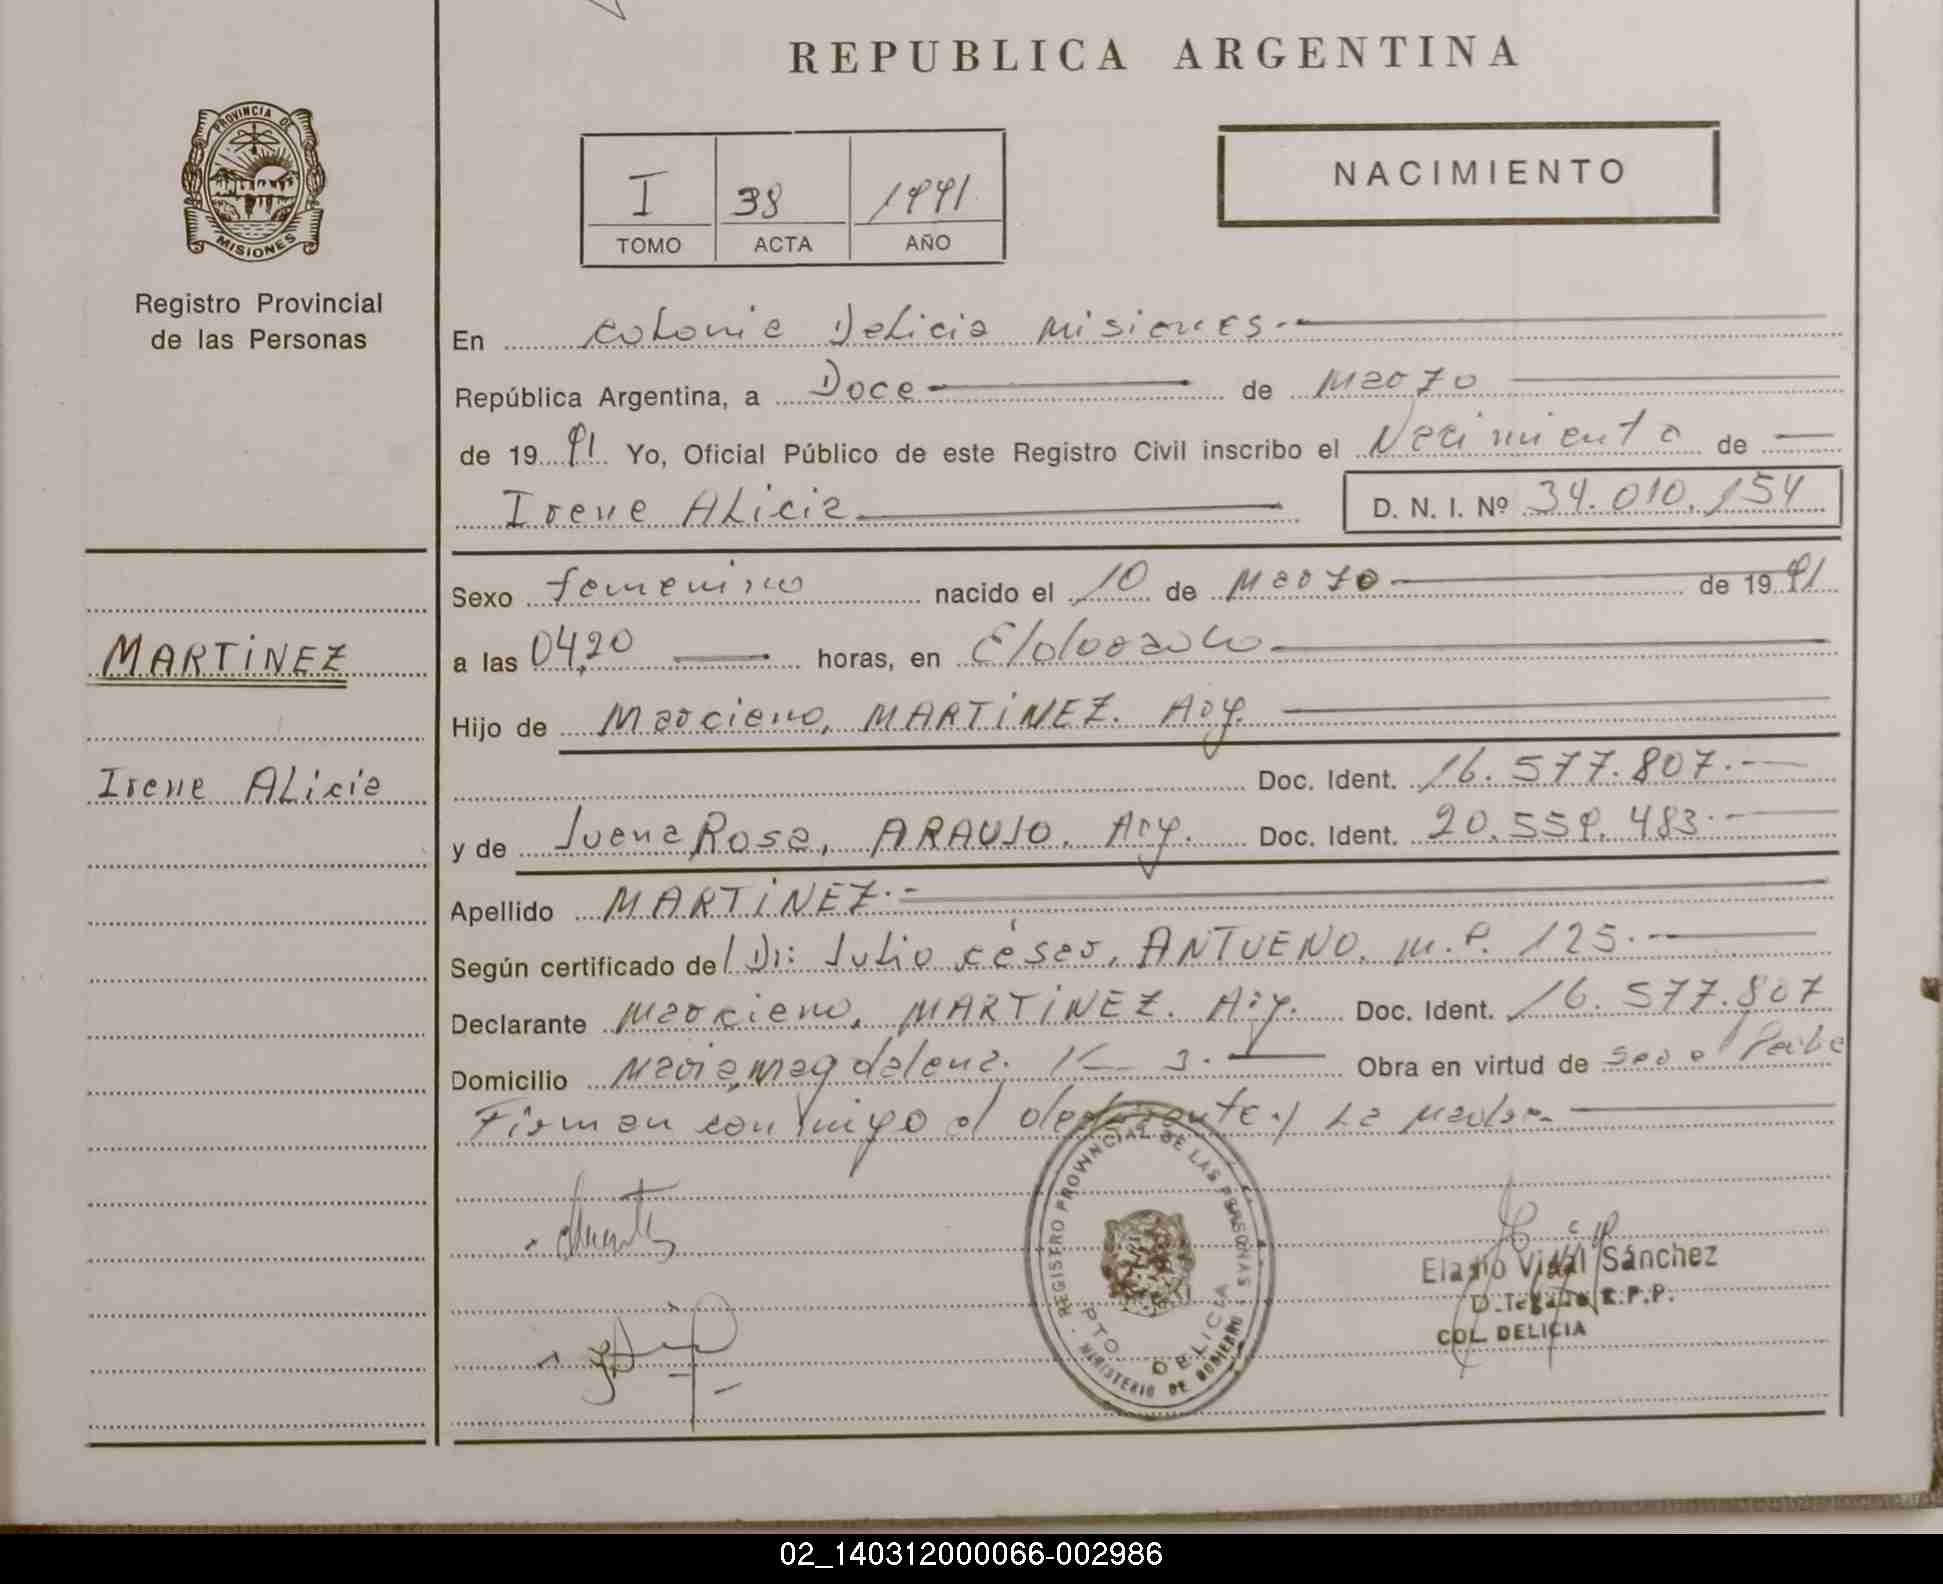 REPUBLICA ARGENTINA
PROVINCIA DE
MISIONES
Registro Provincial
de las Personas
I 38 1991
TOMO ACTA AÑO
NACIMIENTO
En Colonia Delicia Misiones.-
República Argentina, a Doce de Marzo
de 19 91 Yo, Oficial Público de este Registro Civil inscribo el Nacimiento de
Irene Alicia D. N. I. Nº 34.010.154
MARTINEZ
Irene Alicia
Sexo femenino nacido el 10 de Marzo de 19 91
a las 04,20 horas, en Eldorado
Hijo de Marciano, MARTINEZ. Arg.
Doc. Ident. 16.577.807.-
y de Juana Rosa, ARAUJO. Arg. Doc. Ident. 20.559.483.-
Apellido MARTINEZ.-
Según certificado del Dr: Julio César, ANTUENO. M.P. 125.-
Declarante Marciano, MARTINEZ. Arg. Doc. Ident. 16.577.807
Domicilio Maria Magdalena. K 3.- Obra en virtud de ser el Padre
Firman conmigo el declarante y La Madre.
REGISTRO PROVINCIAL DE LAS PERSONAS
PTO DELICIA
MINISTERIO DE GOBIERNO
Eladio Vidal Sánchez
R.P.P.
COL. DELICIA
02_140312000066-002986